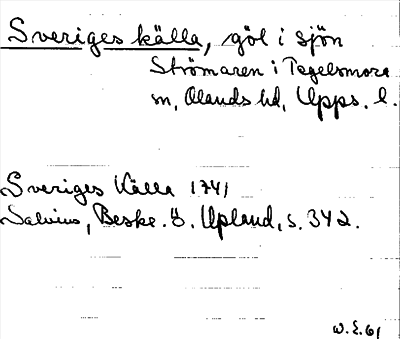 Sveriges källa, göl i sjön
Strömaren i Tegelsmora
sn, Olands hd, Upps. l.
Sveriges Källa 1741
Salvius, Beskr. ö. Upland, s. 342.
W.E. 61